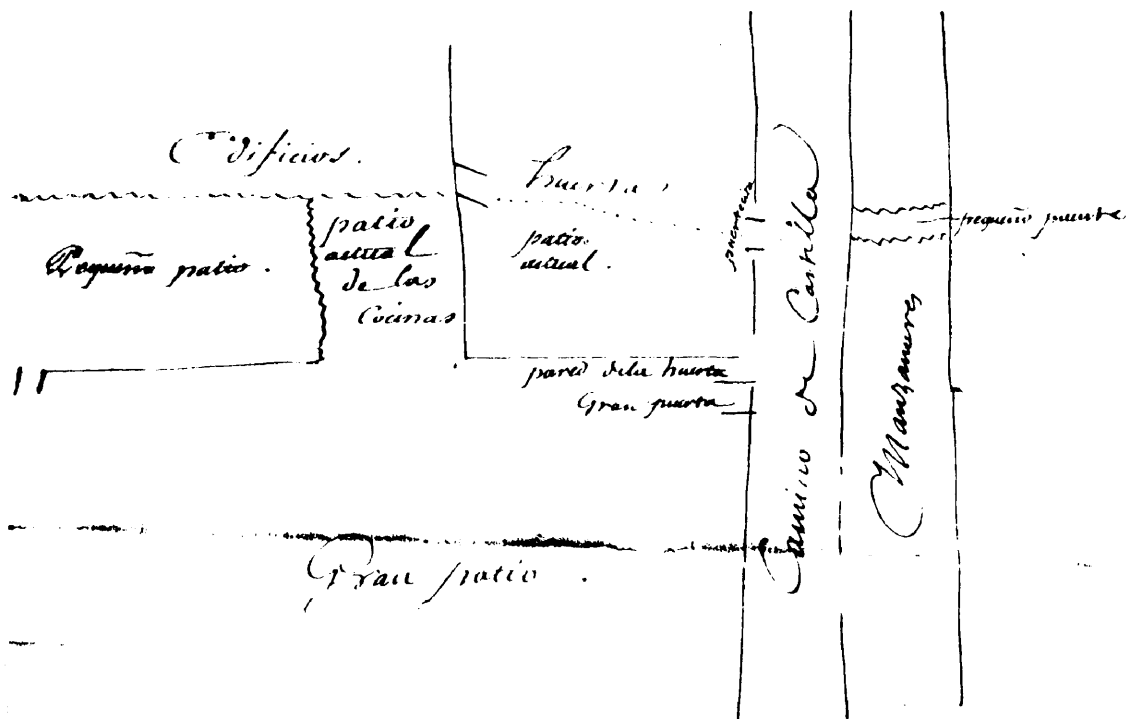 Edificios.
huerta
Pequeño patio.
patio
actual
de las
Cocinas
patio
actual.
puertecita
pequeño puente
pared dela huerta
Gran puerta
Camino de Castilla
Manzanares
Gran patio.